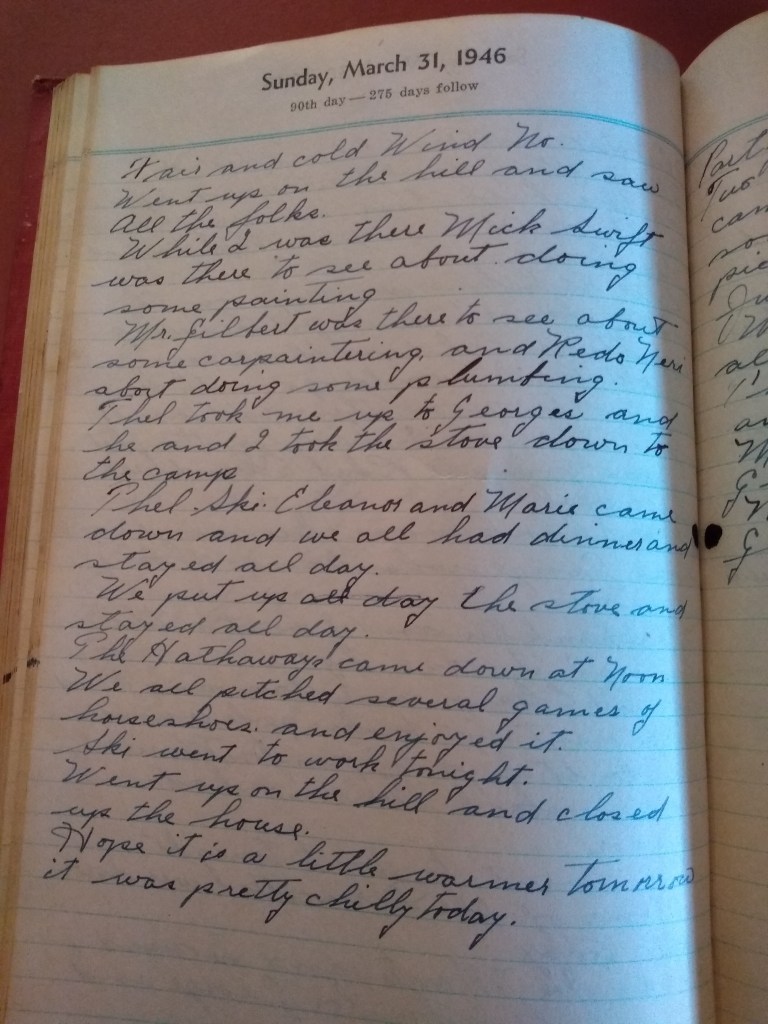 Sunday, March 31, 1946
90th day — 275 days follow
Fair and cold Wind No.
Went up on the hill and saw
All the folks.
While I was there Mick Swift
was there to see about doing
some painting
Mr. Gilbert was there to see about
some carpaintering, and Redo Neri
about doing some plumbing.
Thel took me up to Georges and
he and I took the stove down to
the camp
Thel Ski. Eleanor and Marie came
down and we all had dinner and
stayed all day.
We put up all day the stove and
stayed all day.
The Hathaways came down at Noon
We all pitched several games of
horseshoes. and enjoyed it.
Ski went to work tonight.
Went up on the hill and closed
up the house.
Hope it is a little warmer tomorrow
it was pretty chilly today.